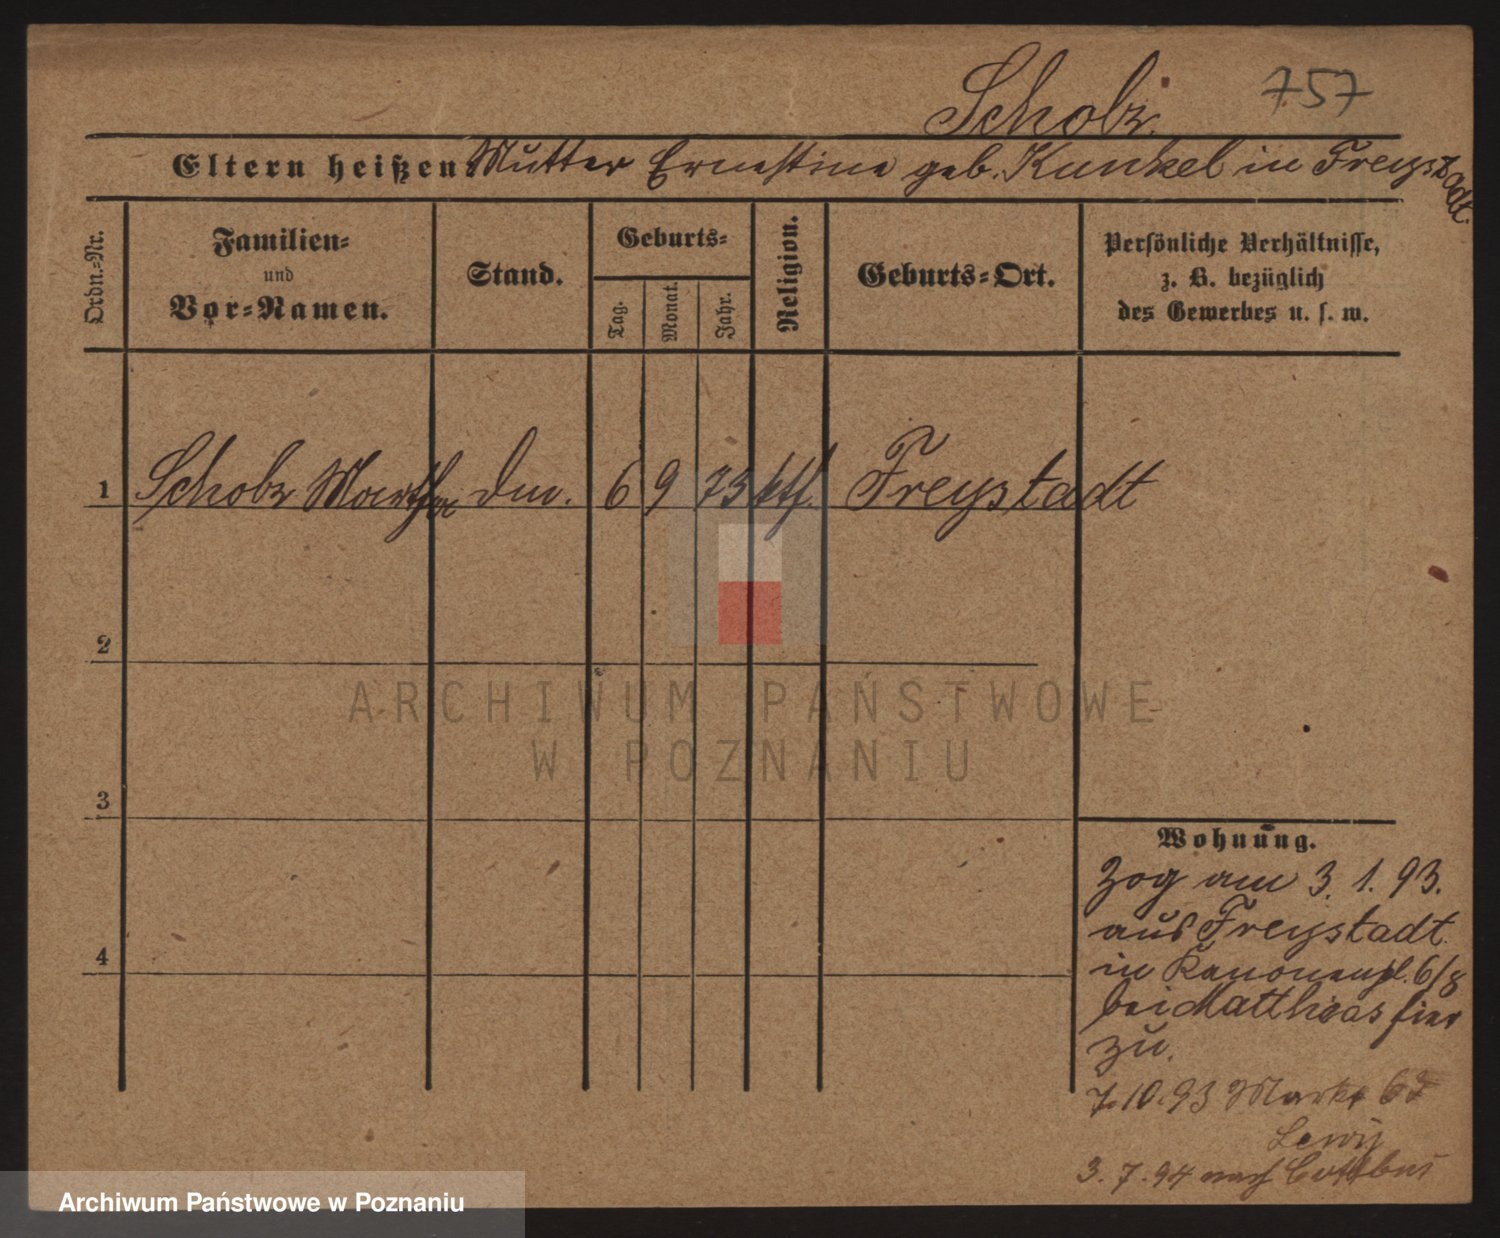 Scholz. 757
Eltern heißen: Mutter Ernestine geb. Kunkel in Freystadt.
Ordn.-Nr.
Familien-
und
Vor-Namen.
Stand.
Geburts-
Tag.
Monat.
Jahr.
Religion.
Geburts-Ort.
Persönliche Verhältnisse,
z. B. bezüglich
des Gewerbes u. s. w.
1 Scholz Martha 6 9 73 kth. Freystadt
2
ARCHIWUM PAŃSTWOWE
W POZNANIU
3
4
Wohnung.
Zog am 3. 1. 93.
aus Freystadt
in Kanonenpl. 6/8
bei Matthias hier
zu.
7.10.93 Markt
Lewy
3.7.94 nach Cottbus
Archiwum Państwowe w Poznaniu